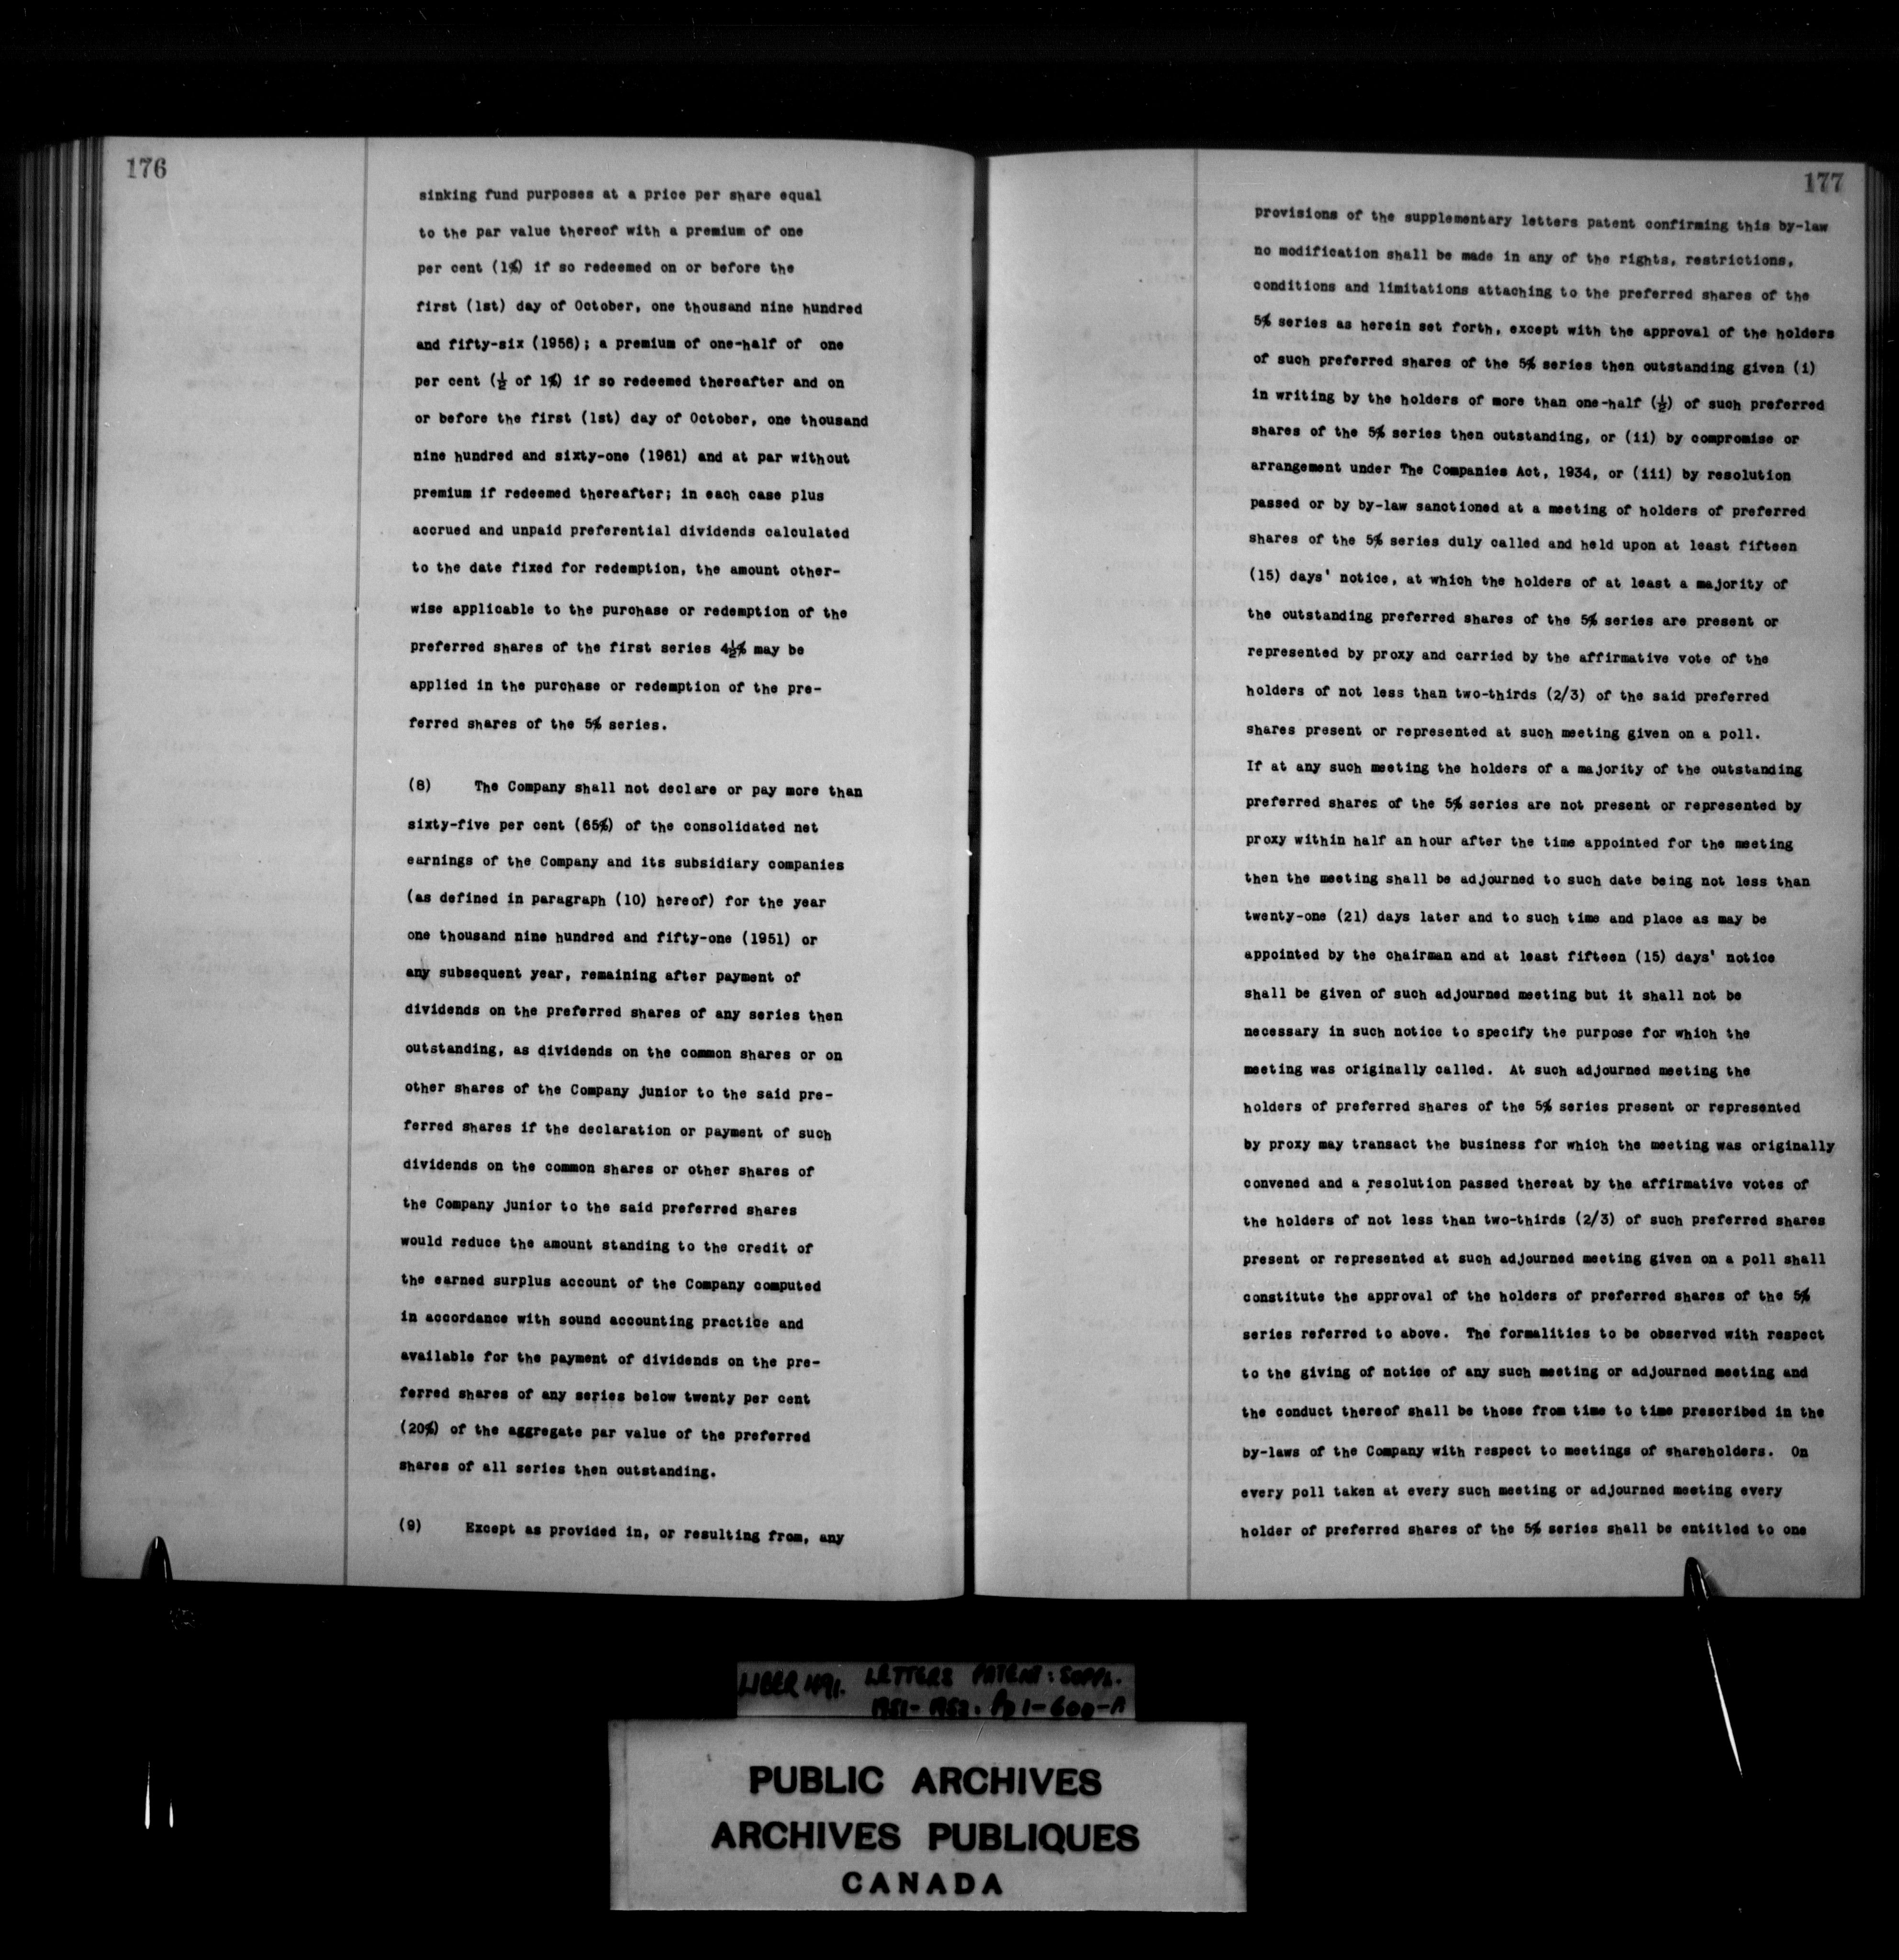 176
sinking fund purposes at a price per share equal
to the par value thereof with a premium of one
per cent (1%) if so redeemed on or before the
first (1st) day of October, one thousand nine hundred
and fifty-six (1956); a premium of one-half of one
per cent (½ of 1%) if so redeemed thereafter and on
or before the first (1st) day of October, one thousand
nine hundred and sixty-one (1961) and at par without
premium if redeemed thereafter; in each case plus
accrued and unpaid preferential dividends calculated
to the date fixed for redemption, the amount other-
wise applicable to the purchase or redemption of the
preferred shares of the first series 4½% may be
applied in the purchase or redemption of the pre-
ferred shares of the 5% series.
(8) The Company shall not declare or pay more than
sixty-five per cent (65%) of the consolidated net
earnings of the Company and its subsidiary companies
(as defined in paragraph (10) hereof) for the year
one thousand nine hundred and fifty-one (1951) or
any subsequent year, remaining after payment of
dividends on the preferred shares of any series then
outstanding, as dividends on the common shares or on
other shares of the Company junior to the said pre-
ferred shares if the declaration or payment of such
dividends on the common shares or other shares of
the Company junior to the said preferred shares
would reduce the amount standing to the credit of
the earned surplus account of the Company computed
in accordance with sound accounting practice and
available for the payment of dividends on the pre-
ferred shares of any series below twenty per cent
(20%) of the aggregate par value of the preferred
shares of all series then outstanding.
(9) Except as provided in, or resulting from, any
177
provisions of the supplementary letters patent confirming this by-law
no modification shall be made in any of the rights, restrictions,
conditions and limitations attaching to the preferred shares of the
5% series as herein set forth, except with the approval of the holders
of such preferred shares of the 5% series then outstanding given (i)
in writing by the holders of more than one-half (½) of such preferred
shares of the 5% series then outstanding, or (ii) by compromise or
arrangement under The Companies Act, 1934, or (iii) by resolution
passed or by by-law sanctioned at a meeting of holders of preferred
shares of the 5% series duly called and held upon at least fifteen
(15) days' notice, at which the holders of at least a majority of
the outstanding preferred shares of the 5% series are present or
represented by proxy and carried by the affirmative vote of the
holders of not less than two-thirds (2/3) of the said preferred
shares present or represented at such meeting given on a poll.
If at any such meeting the holders of a majority of the outstanding
preferred shares of the 5% series are not present or represented by
proxy within half an hour after the time appointed for the meeting
then the meeting shall be adjourned to such date being not less than
twenty-one (21) days later and to such time and place as may be
appointed by the chairman and at least fifteen (15) days' notice
shall be given of such adjourned meeting but it shall not be
necessary in such notice to specify the purpose for which the
meeting was originally called. At such adjourned meeting the
holders of preferred shares of the 5% series present or represented
by proxy may transact the business for which the meeting was originally
convened and a resolution passed thereat by the affirmative votes of
the holders of not less than two-thirds (2/3) of such preferred shares
present or represented at such adjourned meeting given on a poll shall
constitute the approval of the holders of preferred shares of the 5%
series referred to above. The formalities to be observed with respect
to the giving of notice of any such meeting or adjourned meeting and
the conduct thereof shall be those from time to time prescribed in the
by-laws of the Company with respect to meetings of shareholders. On
every poll taken at every such meeting or adjourned meeting every
holder of preferred shares of the 5% series shall be entitled to one
LIBER 491. LETTERS PATENT: SUPPL.
1951-1952. Pp 1-600-A
PUBLIC ARCHIVES
ARCHIVES PUBLIQUES
CANADA